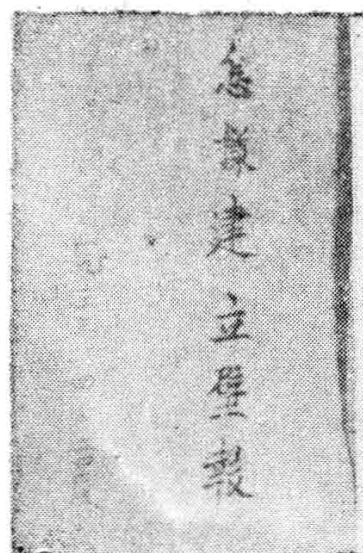 怎樣建立壁報